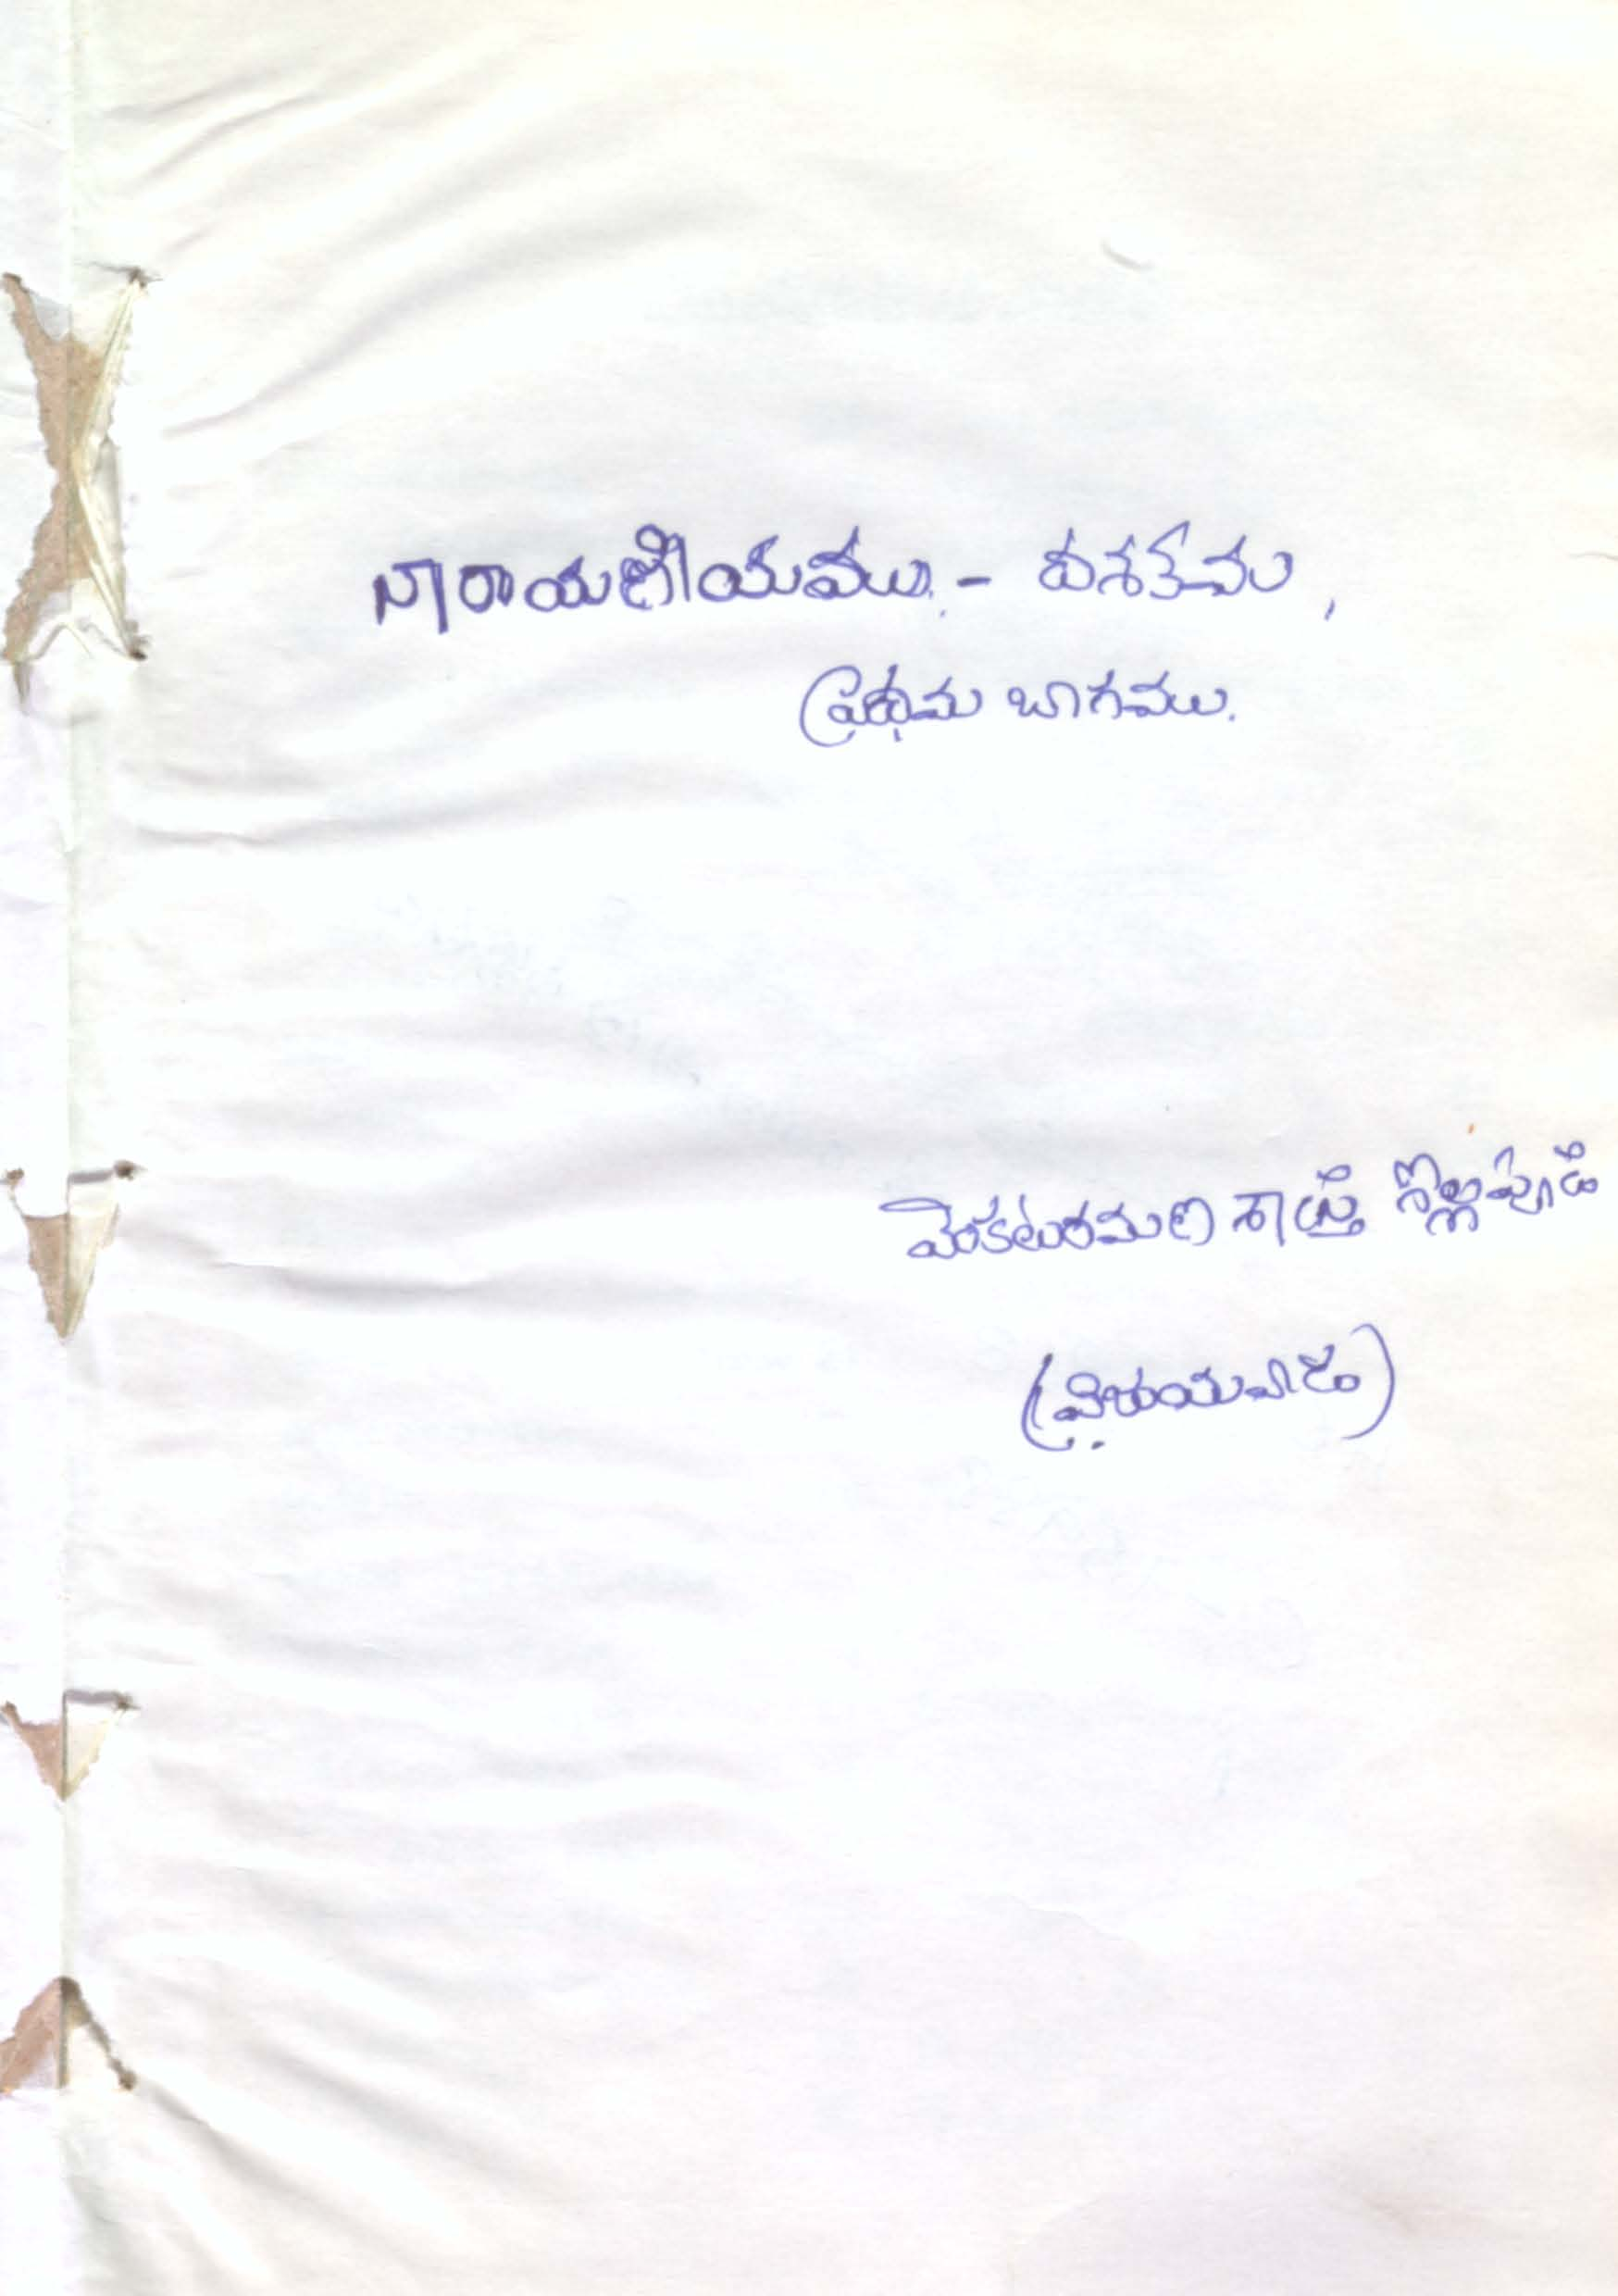 నారాయణీయము. - దశకము,
ప్రథమ బాగము.
వెంకటరమణ శాస్త్రి గొల్లపూడి
(విజయవాడ)